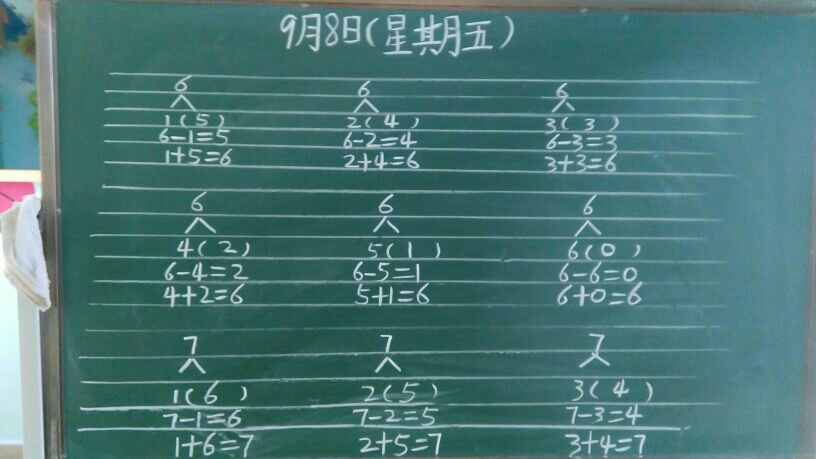 9月8日(星期五)
6 6 6
1(5) 2(4) 3(3)
6-1=5 6-2=4 6-3=3
1+5=6 2+4=6 3+3=6
6 6 6
4(2) 5(1) 6(0)
6-4=2 6-5=1 6-6=0
4+2=6 5+1=6 6+0=6
7 7 7
1(6) 2(5) 3(4)
7-1=6 7-2=5 7-3=4
1+6=7 2+5=7 3+4=7